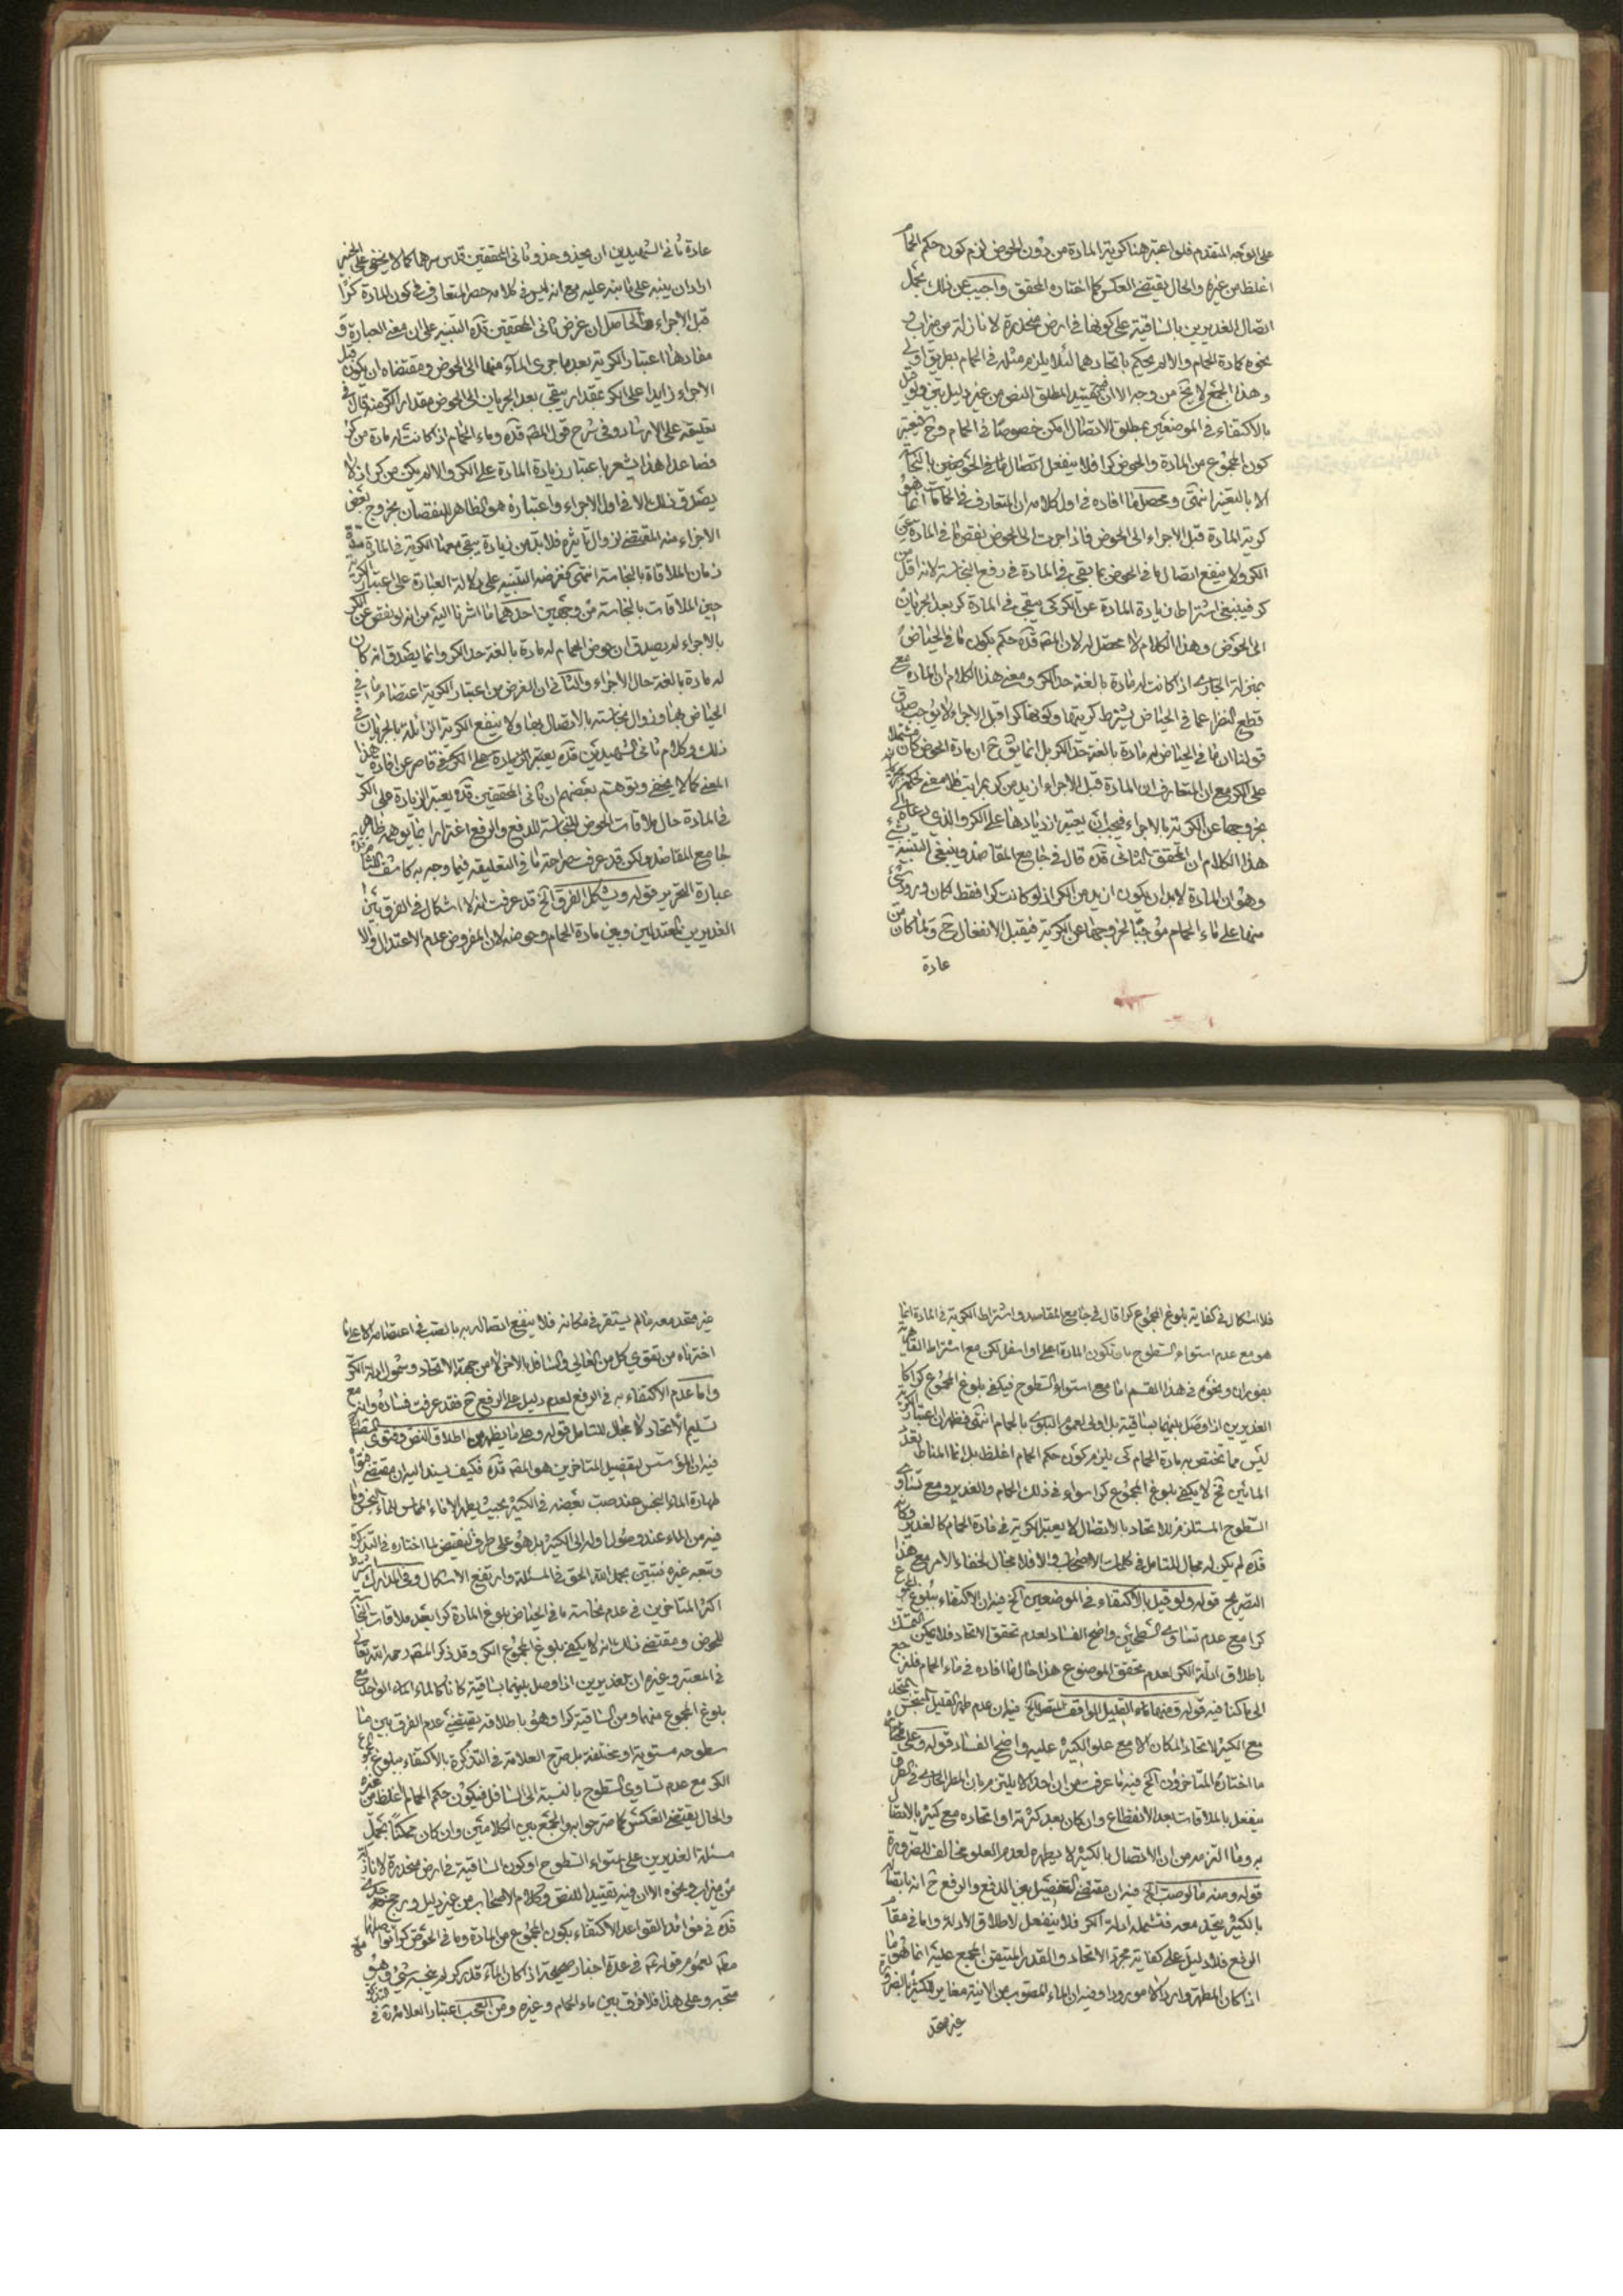 على الوجه المتقدم فلو اعتبر هنا كرية المادة من دون الحوض لزم كون حكم الحمام
اغلظ من غيره والحال يقتضي العكس كما اختاره المحقق واجيب عن ذلك بحمل
اتصال الغديرين بالساقية على كونها في ارض منحدرة لا نازلة من ميزاب و
نحوه كمادة الحمام والا لم يحكم باتحادهما لئلا يلزم مثله في الحمام بطريق اولى
وهذا الجمع لا يخ من وجه الا ان فيه تقييد المطلق النص من غير دليل بين ولو قيل
بالاكتفاء في الموضعين بمطلق الاتصال امكن خصوصا في الحمام وح فيعتبر
كون المجموع من المادة والحوض كرا فلا ينفعل اتصال ما في الحوضين بالنجاسة
الا بالتغير انتهى ومحصل ما افاده في اول كلامه ان المتعارف في الحمامات انما هو
كرية المادة قبل الاجراء الى الحوض فاذا جرت الى الحوض نقص ما في المادة عن
الكر ولا ينفع اتصال ما في الحوض بما بقي في المادة في رفع النجاسة لانه اقل من
كر فينبغي اشتراط زيادة المادة عن الكر كي يبقى في المادة كر بعد الجريان
الى الحوض وهذا الكلام لا محصل له لان المصه قده حكم بكون ما في الحياض
بمنزلة الجاري اذا كانت له مادة بالغة حد الكر ومعنى هذا الكلام ان المادة مع
قطع النظر عما في الحياض يشترط كريتها وكونها كرا قبل الاجراء لا يوجب صدق
قولنا ان ما في الحياض له مادة بالغة حد الكر بل انما يق ح ان مادة الحوض كان مشتملا
على الكر مع ان المتعارف ان المادة قبل الاجراء ازيد من كر بمراتب فلا معنى لحكمه
بخروجها عن الكرية بالاجراء فيجب ان يعتبر ازديادها على الكر والذي دعاه الى
هذا الكلام ان المحقق الثاني قده قال في جامع المقاصد وينبغي التنبيه لشيء
وهو ان المادة لا بد ان يكون ازيد من الكر اذ لو كانت كرا فقط لكان ورود شيء
منها على ماء الحمام موجبا لخروجها عن الكرية فيقبل الانفعال ح ولما كان من
عادة
عادة ثاني الشهيدين ان يحذو حذو ثاني المحققين قدس سرهما كما لا يخفى على الخبير
اراد ان ينبه على ما نبه عليه مع انه ليس في كلامه حصر المتعارف في كون المادة كرا
قبل الاجراء والحاصل ان غرض ثاني المحققين قده التنبيه على ان معنى العبارة و
مفادها اعتبار الكرية بعد ما جرى الماء منها الى الحوض ومقتضاه ان يكون قبل
الاجراء زايدا على الكر بمقدار يبقى بعد الجريان الى الحوض مقدار الكر منه قال في
تعليقه على الارشاد وفي شرح قول المصه قده وماء الحمام اذا كانت له مادة من كر
فصاعدا هذا يشعر باعتبار زيادة المادة على الكر والا لم يكن من كر اذ لا
يصدق ذلك الا في اول الاجراء واعتباره هو الظاهر للنقصان بخروج بعض
الاجزاء منه المقتضي لزوال تاثيره فلا بد من زيادة يبقى معها الكرية في المادة
زمان الملاقاة بالنجاسة انتهى فغرضه التنبيه على دلالة العبارة على اعتبار الكرية
حين الملاقات بالنجاسة من وجهين احدهما ما اشرنا اليه من انه لو نقص عن الكر
بالاجراء لم يصدق ان حوض الحمام له مادة بالغة حد الكر وانما يصدق انه كان
له مادة بالغة حال الاجراء والثاني ان الغرض من اعتبار الكرية اعتصام ما في
الحياض بها وزوال نجاسته بالاتصال بها ولا ينفع الكرية الزائلة بالجريان في
ذلك وكلام ثاني الشهيدين قده يعتبر الزيادة على الكر فهو قاصر عن افادة هذا
المعنى كما لا يخفى وتوهم بعضهم ان ثاني المحققين قده يعتبر الزيادة على الكر
في المادة حال ملاقات الحوض للنجاسة للدفع والرفع اغترارا بما يوهمه ظاهر
جامع المقاصد ولكن قد عرفت صراحة ما في التعليقة فيما وجه به
عبارة التحرير قوله ويشكل الفرق الخ قد عرفت انه لا اشكال في الفرق بين
الغديرين المعتدلين وبين مادة الحمام وحوضه لان المفروض عدم الاعتدال والا
فلا اشكال في كفاية بلوغ المجموع كرا قال في جامع المقاصد واشتراط الكرية في المادة انما
هو مع عدم استواء السطوح بان تكون المادة اعلى او اسفل لكن مع اشتراط القاهرية
بفوران ونحوه في هذا القسم اما مع استواء السطوح فيكفي بلوغ المجموع كرا كما
الغديرين اذا وصل بينهما بساقية بل اولى لعموم البلوى بالحمام انتهى فظهر ان اعتبار الكرية
ليس مما تختص به مادة الحمام كي يلزم كون حكم الحمام اغلظ بل انما المناط تعدد
المائين فح لا يكفي بلوغ المجموع كرا سواء في ذلك الحمام والغدير ومع تساوي
السطوح المستلزم للاتحاد بالاتصال لا يعتبر الكرية في مادة الحمام كالغدير وكانه
قده لم يكن له مجال التامل في كلمات الاصحاب والا فلا مجال لخفاء الامر مع هذا
التصريح قوله ولو قيل بالاكتفاء في الموضعين الخ فيه ان الاكتفاء ببلوغ المجموع
كرا مع عدم تساوي السطحين واضح الفساد لعدم تحقق الاتحاد فلا يمكن التمسك
باطلاق ادلة الكر لعدم تحقق الموضوع هذا حال ما افاده في ماء الحمام فلنرجع
الى ما كنا فيه قوله ومنها ماء القليل الواقف المتصل الخ فيه ان عدم طهر القليل المتنجس المتحد
مع الكثير لاتحاد المكان الا مع علو الكثير عليه واضح الفساد قوله وعلى
ما اختاره المتاخرون الخ فيه ما عرفت من ان احدا لا يلتزم بان المطر الجاري في
ينفعل بالملاقات بعد الانقطاع وان كان بعد كثرته او اتحاده مع كثير بالاتصال
به وما التزمه من ان الاتصال بالكثير لا يطهره لعدم العلو مخالف للضرورة
قوله ومنه ما لو صب الخ فيه ان مقتضى التفصيل بين الدفع والرفع ح انه باتصاله
بالكثير يتحد معه فتشمله ادلة الكر فلا ينفعل لاطلاق الادلة واما في مقام
الرفع فلا دليل على كفاية مجرد الاتحاد والقدر المتيقن المجمع عليه انما هو ما
اذا كان المطهر واردا لا مورودا وفيه ان الماء المصبوب من الانية مغاير للكثير بالضرورة
غير متحد
غير متحد معه ما لم يستقر في مكانه فلا ينفع اتصاله به بالصب في اعتصامه الا على ما
اخترناه من تقوي كل من العالي والسافل بالاخر لا من جهة الاتحاد وشمول ادلة الكر
واما عدم الاكتفاء به في الرفع لعدم دليل على الرفع ح فقد عرفت فساده وانه مع
تسليم الاتحاد لا مجال للتامل قوله وعلى ما يظهر من اطلاق النص وفتوى
فيه ان المؤسس لتفصيل المتاخرين هو المصه قده فكيف يسند اليه ان مقتضى
طهارة الماء النجس عند صب بعضه في الكثير بحيث يطهر الاناء المماس للماء النجس وما
فيه من الماء عند وصول اوله الى الكثير بل هو على طرف النقيض لما اختاره في التذكرة
وتبعه غيره فتبين بحمد الله الحق في المسئلة وارتفع الاشكال وفي المدارك شرط
اكثر المتاخرين في عدم نجاسة ما في الحياض بلوغ المادة كرا بعد ملاقات النجاسة
للحوض ومقتضى ذلك انه لا يكفي بلوغ المجموع الكر وقد ذكر المصه رحمه الله تعالى
في المعتبر وغيره ان الغديرين اذا وصل بينهما بساقية كانا كالماء الواحد مع
بلوغ المجموع منهما ومن الساقية كرا وهو باطلاقه يقتضي عدم الفرق بين ما
سطوحه مستوية او مختلفة بل صرح العلامة في التذكرة بالاكتفاء ببلوغ المجموع
الكر مع عدم تساوي السطوح بالنسبة الى السافل فيكون حكم الحمام اغلظ من غيره
والحال يقتضي العكس كما صرحوا به والجمع بين الكلامين وان كان ممكنا بحمل
مسئلة الغديرين على استواء السطوح او كون الساقية في ارض منحدرة لا نازلة
من ميزاب ونحوه الا ان فيه تقييدا للنص وكلام الاصحاب من غير دليل ورجح جدي
قده في فوائد القواعد الاكتفاء بكون المجموع من المادة وما في الحوض كرا
لعموم قوله ع في عدة اخبار صحيحة اذا كان الماء قدر كر لم ينجسه شيء وهو
متجه وعلى هذا فلا فرق بين ماء الحمام وغيره ومن العجب اعتبار العلامة ره في